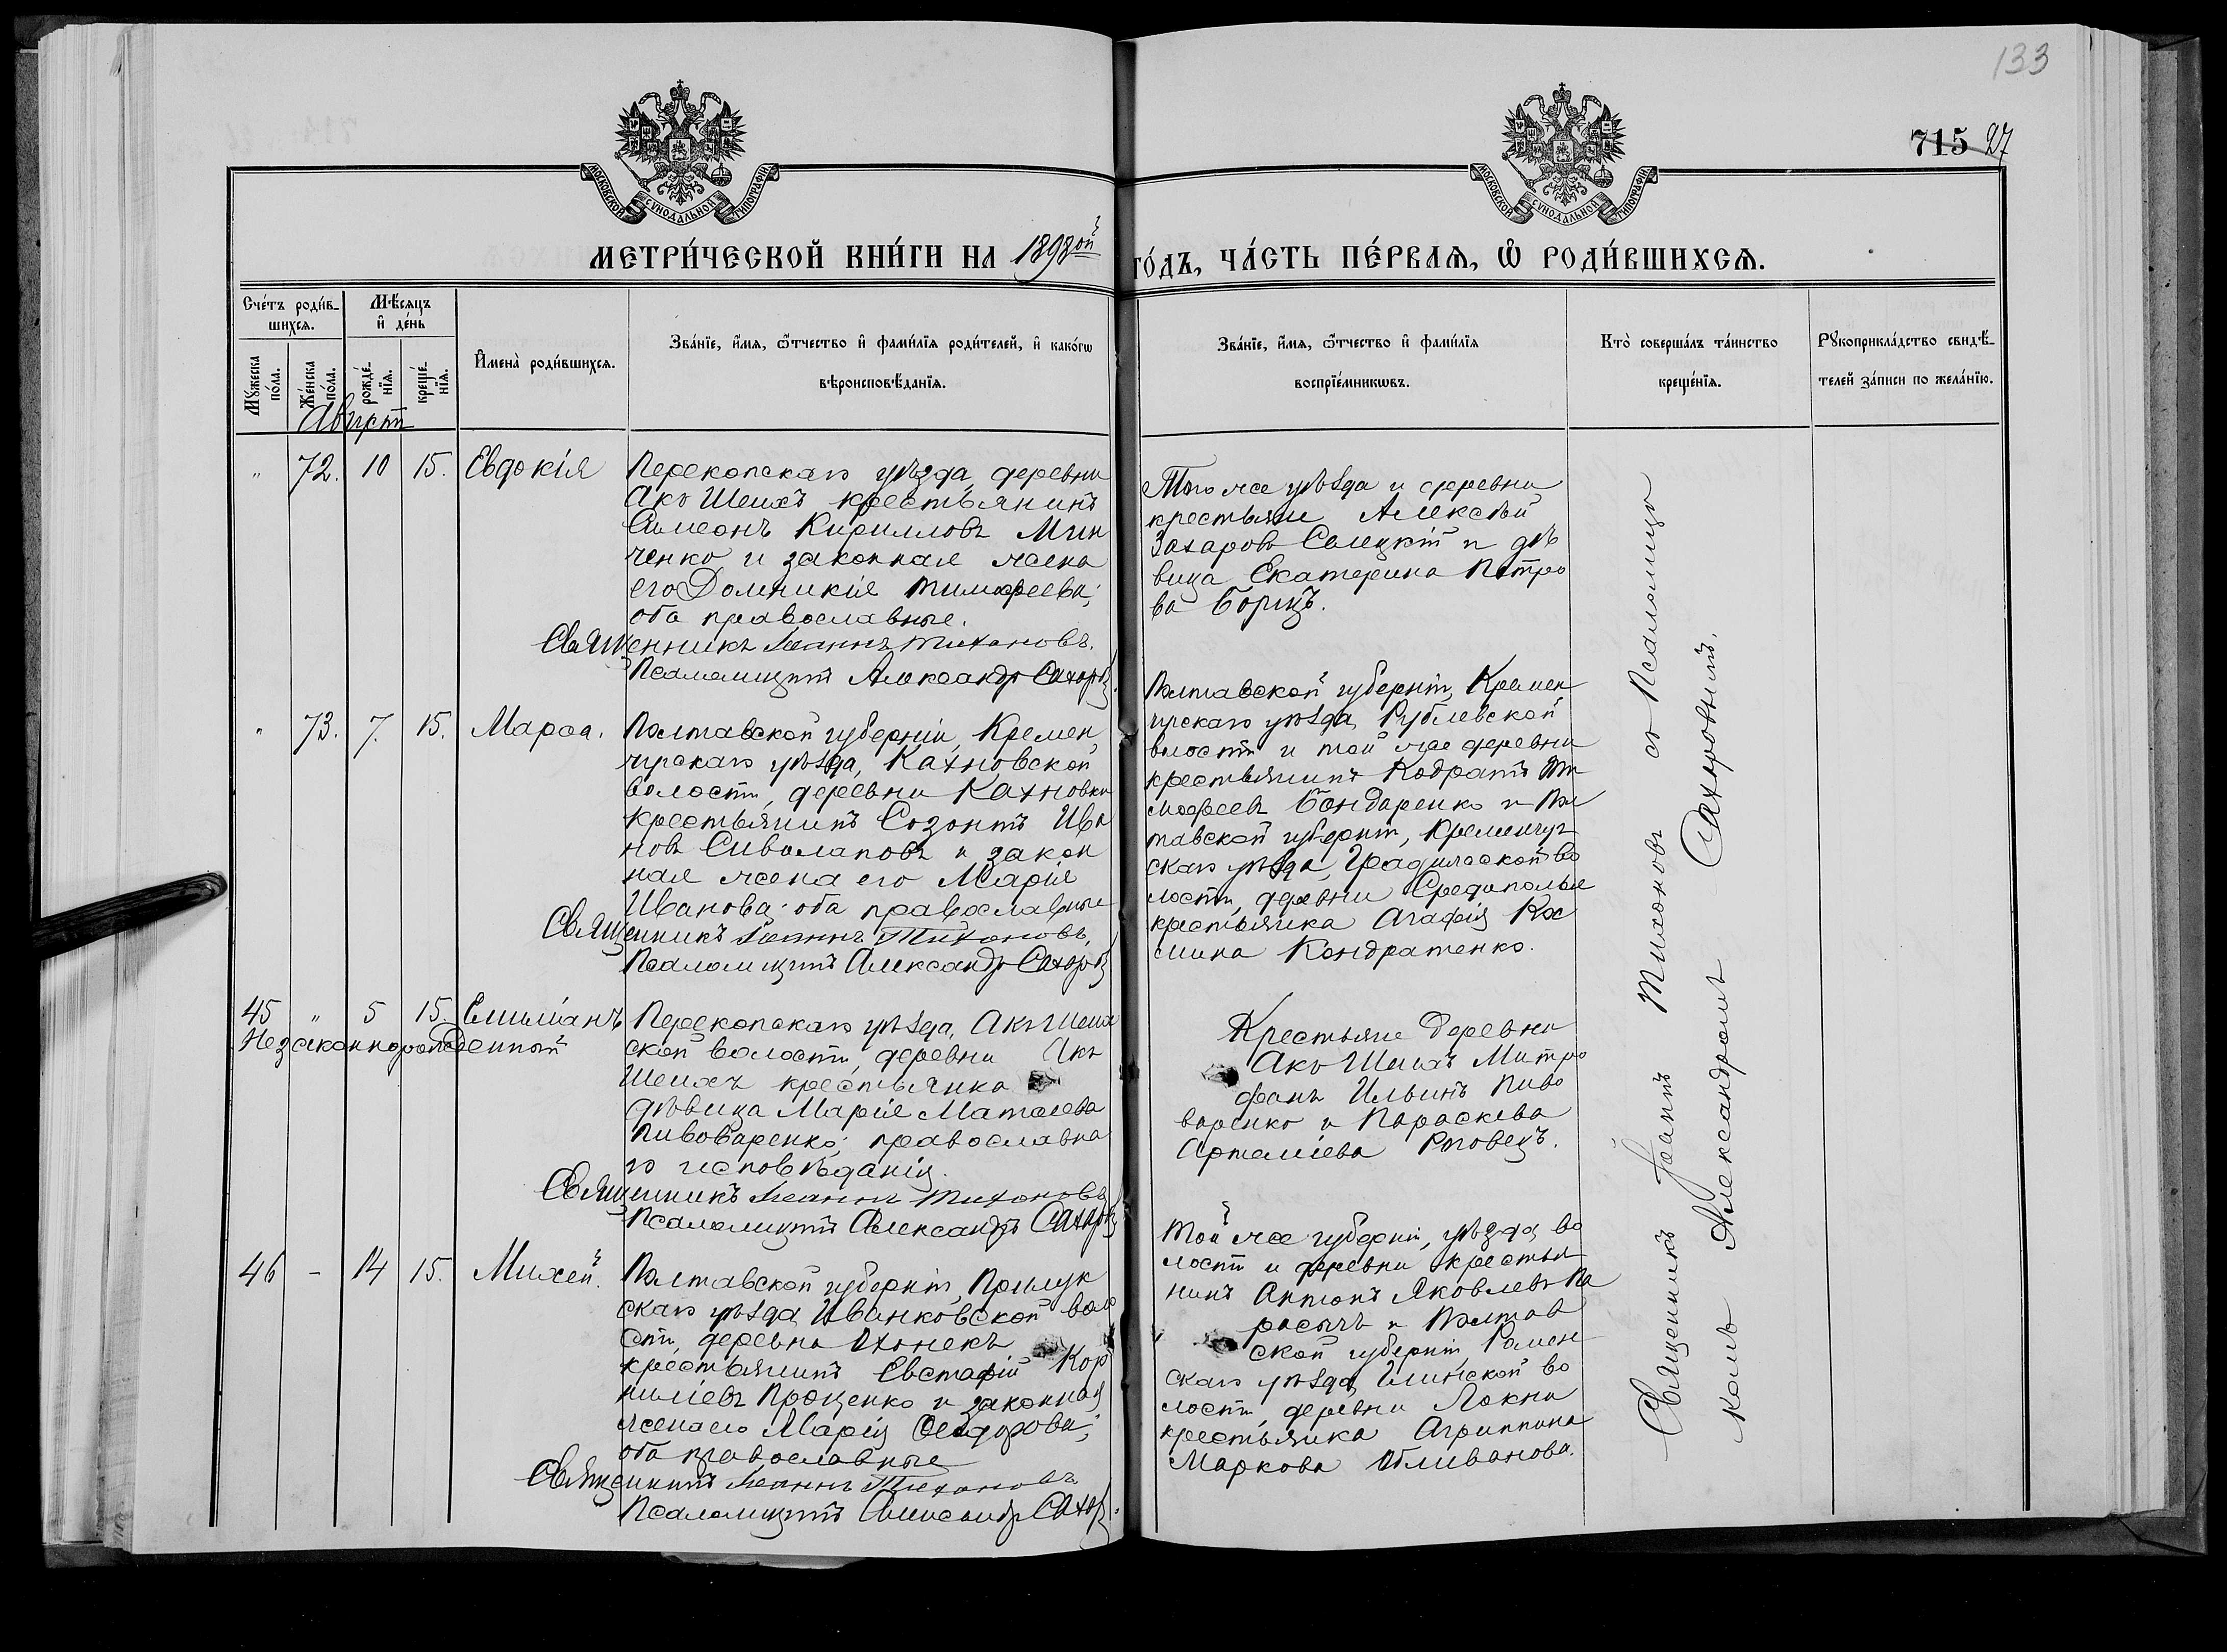 133
715 27
МОСКОВСКОЙ СУНОДАЛЬНОЙ ТИПОГРАФІИ
МОСКОВСКОЙ СУНОДАЛЬНОЙ ТИПОГРАФІИ
МЕТРИ́ЧЕСКОЙ КНИ́ГИ НА 1898ой
ГО́ДЪ, ЧА́СТЬ ПЕ́РВАѦ, Ѽ РОДИ́ВШИХСѦ.
Сче́тъ роди́в-
шихсѧ.
Мѣ́сѧцъ
и҆ де́нь
Мꙋ́жеска
по́ла.
Же́нска
по́ла.
рожде́-
нїѧ.
креще́-
нїѧ.
И҆мена̀ роди́вшихсѧ.
Зва́нїе, и҆́мѧ, ѻ҆́тчество и҆ фами́лїѧ роди́телей, и҆ како́гѡ
вѣроисповѣ́данїѧ.
Зва́нїе, и҆́мѧ, ѻ҆́тчество и҆ фами́лїѧ
воспрїе́мникѡвъ.
Кто̀ соверша́лъ та́инство
креще́нїѧ.
Рꙋкоприкла́дство свидѣ́-
телей за́писи по жела́нїю.
Августъ
" 72. 10 15. Евдокія
Перекопскаго уѣзда, деревни
Акъ Шеихъ крестьянинъ
Симеонъ Кирилловъ Мин
ченко и законная жена
его Домникія Тимофеева;
оба православные.
Священникъ Іоаннъ Тихоновъ.
Псаломщикъ Александръ Сахоров
Того же уѣзда и деревни
крестьяне Алексѣй
Захаровъ Селецкій и дѣ
вица Екатерина Петро
ва Борщъ.
" 73. 7. 15. Марѳа.
Полтавской губерніи, Кремен
чугскаго уѣзда, Кахновской
волости, деревни Кахновки
крестьянинъ Созонтъ Ива
новъ Сиволаповъ и закон
ная жена его Марія
Иванова; оба православные
Священникъ Іоаннъ Тихоновъ,
Псаломщикъ Александръ Сахоров
Полтавской губерніи, Кремен
чугскаго уѣзда, Рублевской
волости и той же деревни
крестьянинъ Кодратъ Ти
мофеевъ Бондаренко и Пол
тавской губерніи, Кременчуг
скаго уѣзда, Градижской во
лости, деревни Средиполья
крестьянка Агафія Кос
мина Кондратенко.
45 " 5 15. Емиліанъ
Незаконнорожденный
Перекопскаго уѣзда, Акъ Шеих
ской волости, деревни Акъ
Шеихъ крестьянка
дѣвица Марія Матѳеева
Пивоваренко; православна
го исповѣданія.
Священникъ Іоаннъ Тихоновъ
Псаломщикъ Александръ Сахоров
Крестьяне деревни
Акъ Шеихъ Митро
фанъ Ильинъ Пиво
варенко и Параскева
Артеміева Роговецъ.
46 - 14 15. Михей.
Полтавской губерніи, Прилук
скаго уѣзда, Иванковской воло
сти, деревни
крестьянинъ Евстафій Кор
ниліевъ Проценко и законная
жена его Марія Ѳеодорова;
оба православные
Священникъ Іоаннъ Тихоновъ
Псаломщикъ Александръ Сахор
Той же губерніи, уѣзда, во
лости и деревни крестья
нинъ Антонъ Яковлевъ Па
расичъ и Полтав
ской губерніи, Ромен
скаго уѣзда, Глинской во
лости, деревни Локни
крестьянка Агриппина
Маркова Обливанова.
Священникъ Іоаннъ Тихоновъ съ Псаломщи
комъ Александромъ Сахоровымъ.